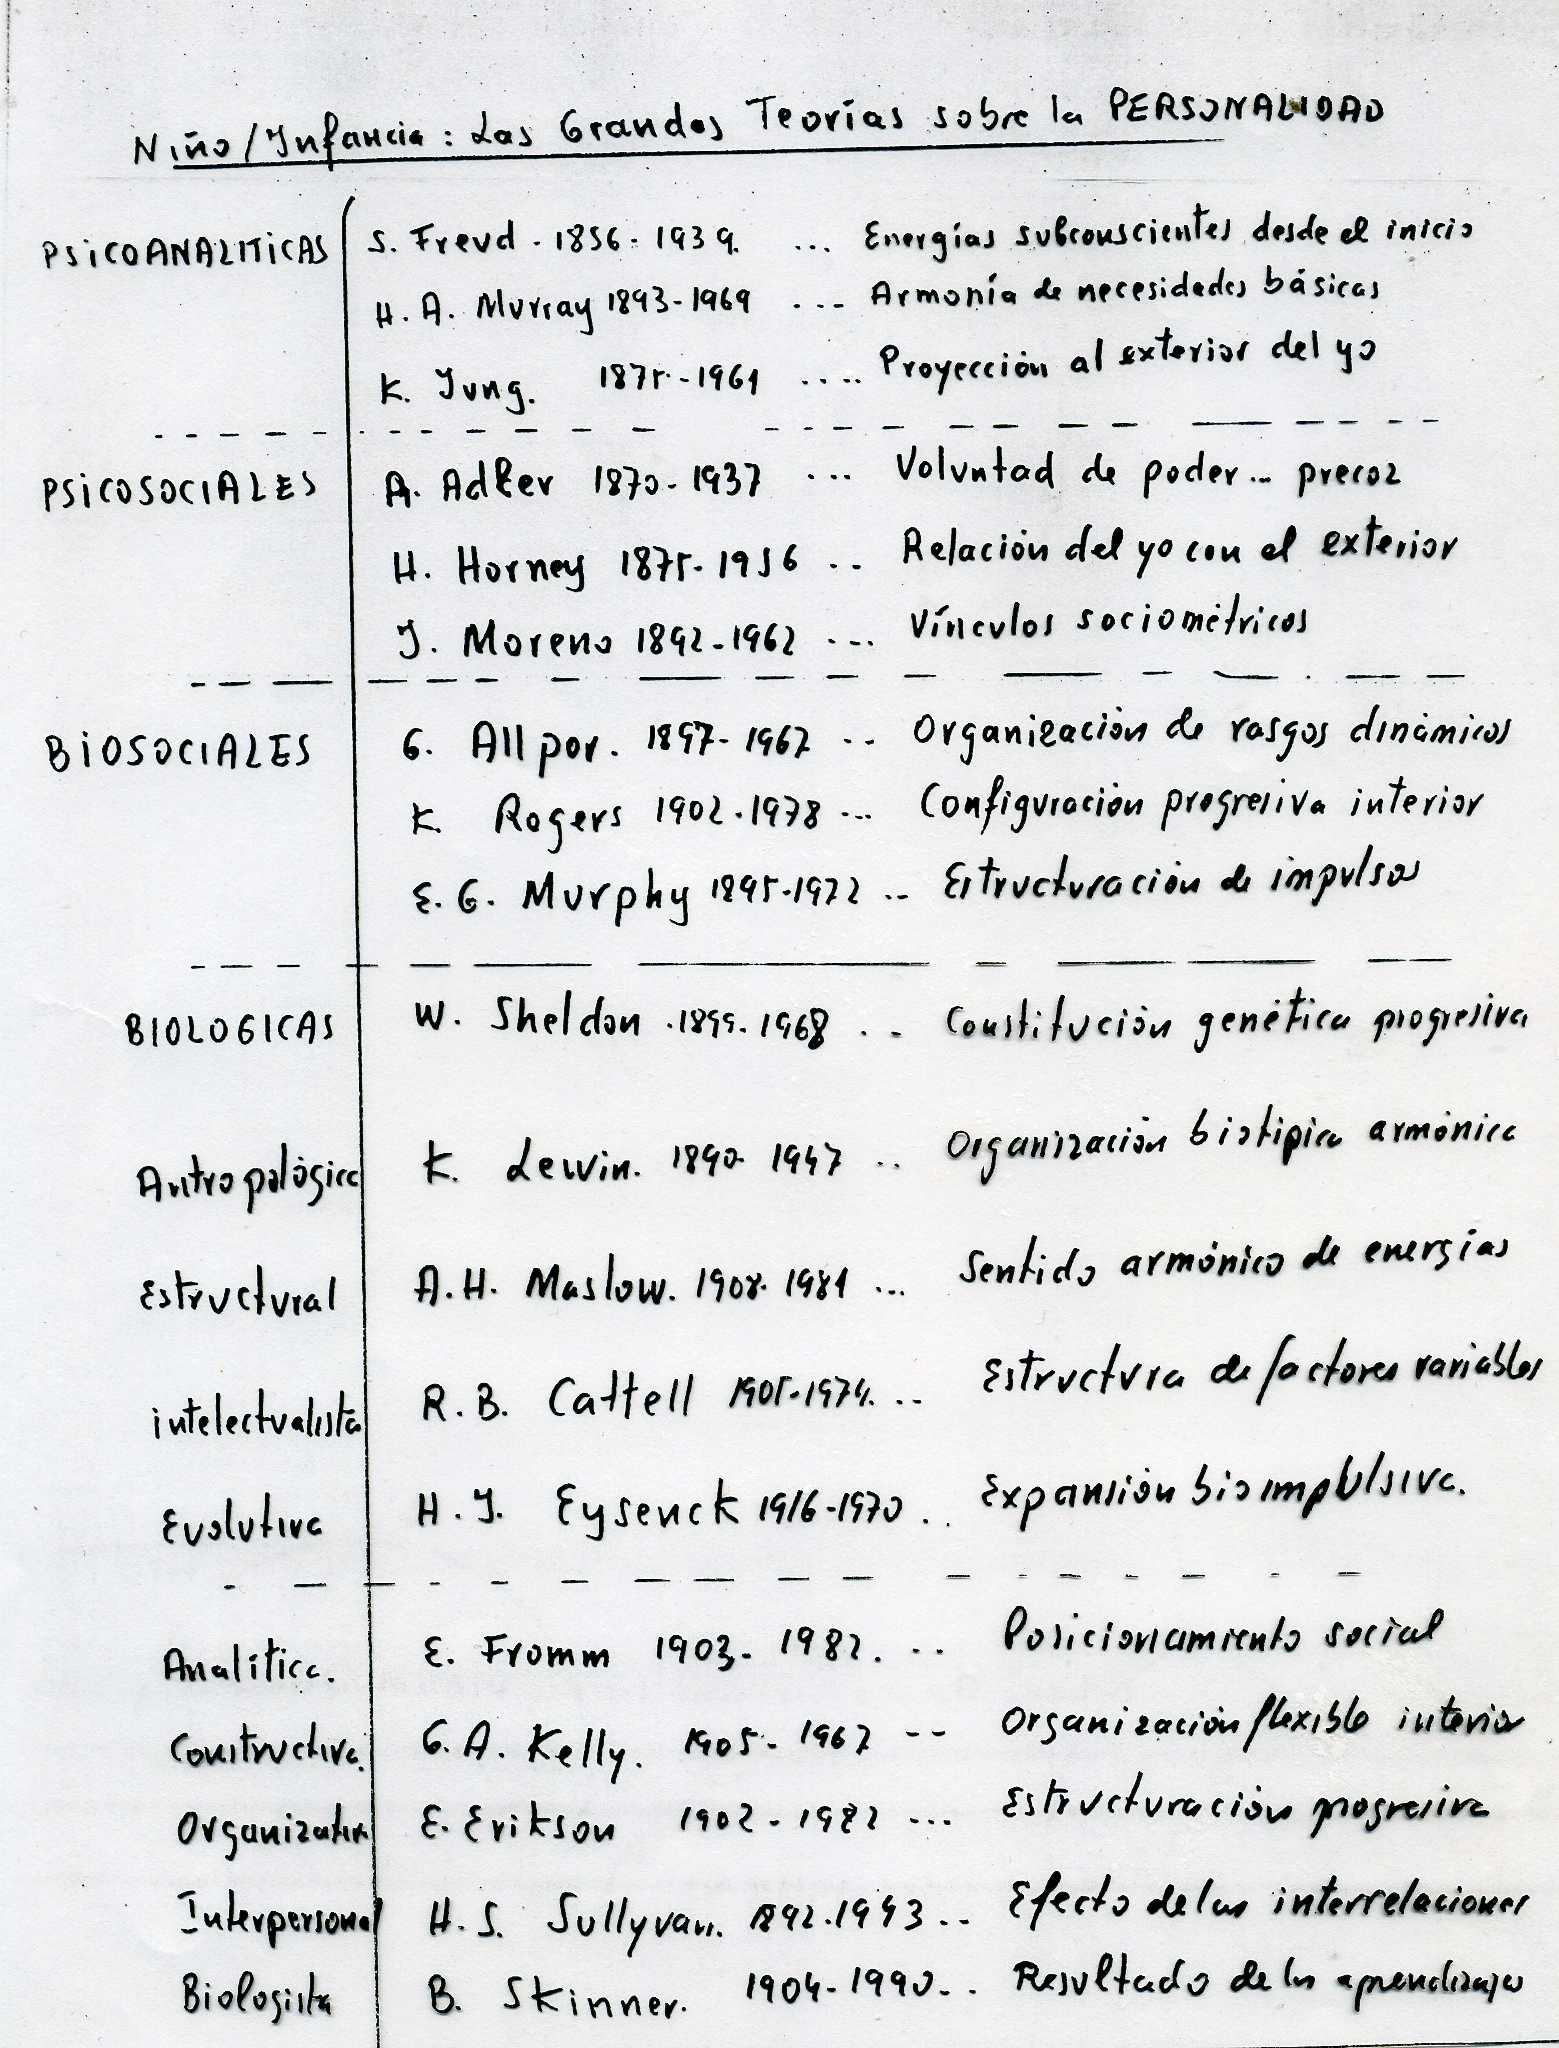 Niño/Infancia: Las Grandes Teorías sobre la PERSONALIDAD
PSiCOANALITICAS S. Freud - 1856 - 1939. ... Energías subconscientes desde el inicio
H. A. Murray 1893-1969 ... Armonía de necesidades básicas
K. Jung. 1875-1961 .... Proyección al exterior del yo
PSICOSOCIALES A. Adler 1870-1937 ... Voluntad de poder... precoz
H. Horney 1875-1956 .. Relación del yo con el exterior
J. Moreno 1892-1962 ... Vínculos sociométricos
BIOSOCIALES G. Allpor. 1897-1967 .. Organización de rasgos dinámicos
K. Rogers 1902-1978 ... Configuración progresiva interior
E. G. Murphy 1895-1972 .. Estructuración de impulsos
BIOLOGICAS W. Sheldon .1899-1968 .. Constitución genética progresiva
Antropológica K. Lewin. 1890-1947 .. Organización biotípica armónica
Estructural A. H. Maslow. 1908-1981 ... Sentido armónico de energías
intelectualista R. B. Cattell 1905-1974. .. Estructura de factores variables
Evolutiva H. J. Eysenck 1916-1970 .. Expansión bioimpulsiva.
Analítica. E. Fromm 1903-1982. .. Posicionamiento social
Constructiva. G. A. Kelly. 1905-1967 -- Organización flexible interior
Organizativa E. Erikson 1902-1982 ... Estructuración progresiva
Interpersonal H. S. Sullyvan. 1892-1943 .. Efecto de las interrelaciones
Biologista B. Skinner. 1904-1990 .. Resultado de los aprendizajes